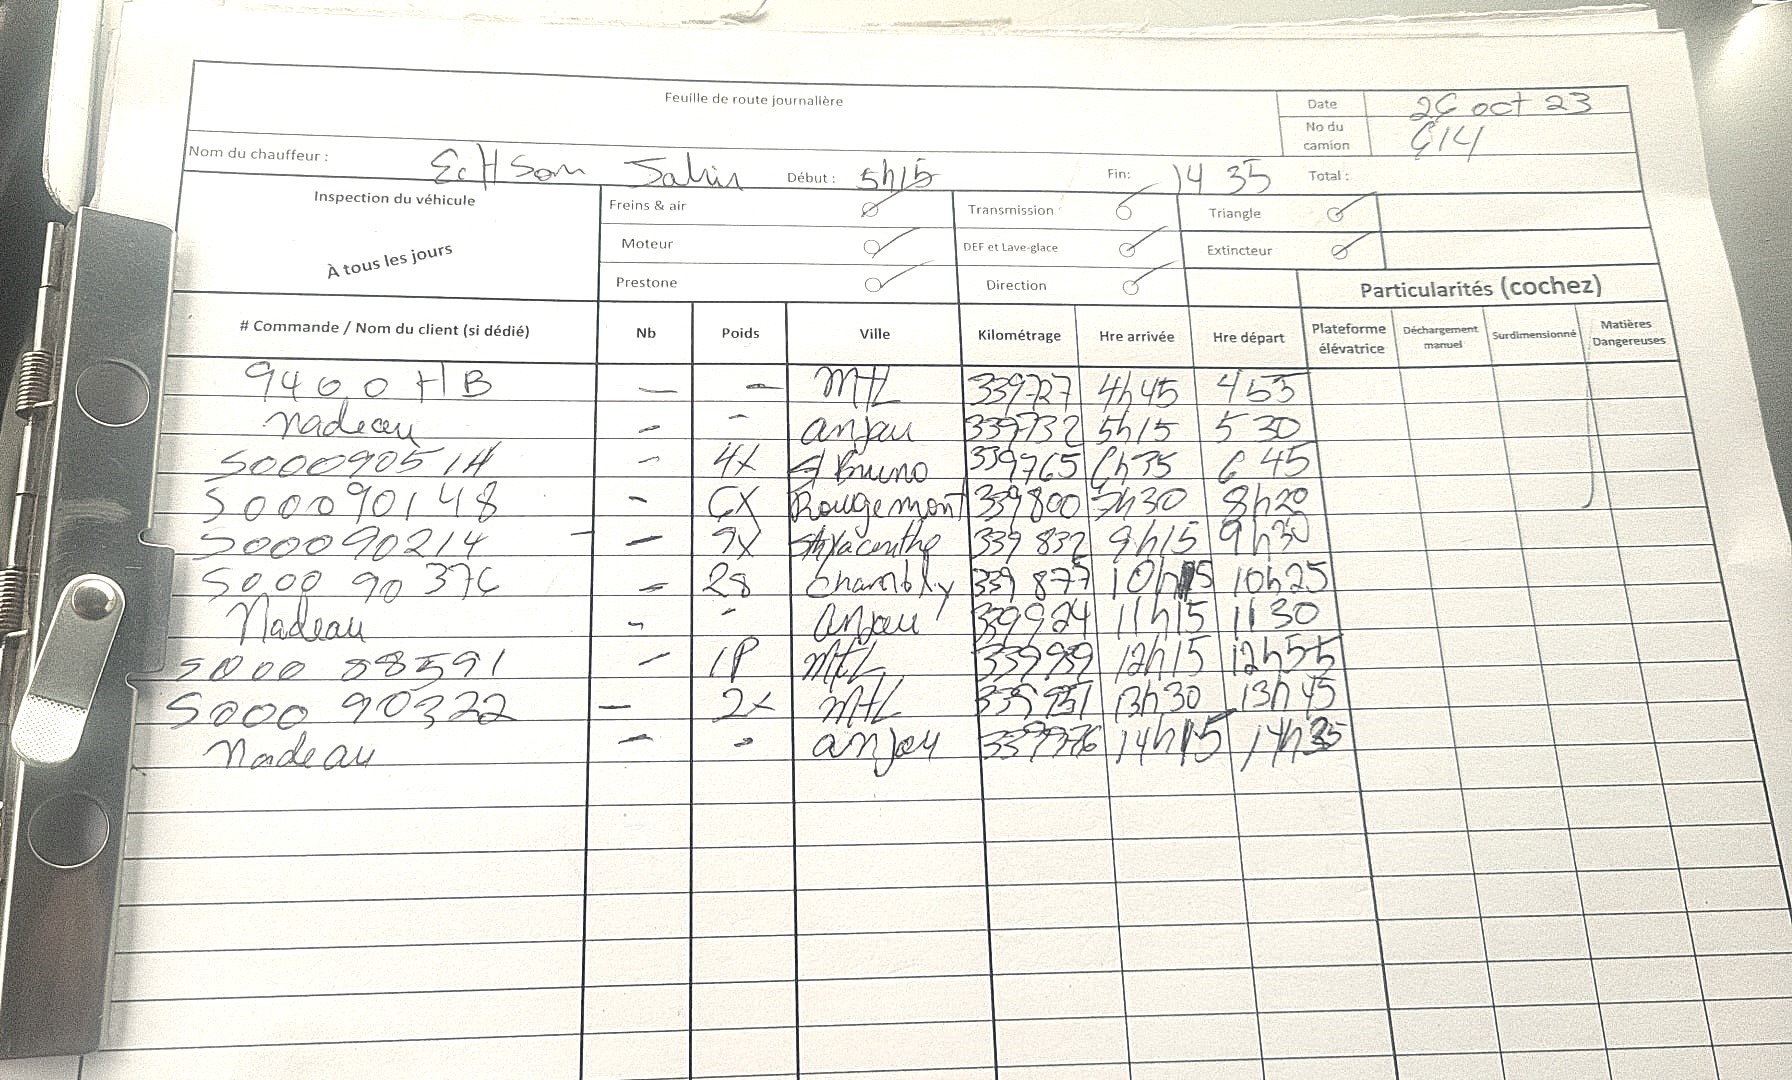 Feuille de route journalière
Date 26 oct 23
No du camion 614
Nom du chauffeur : Début : 5h15 Fin: 14 35 Total :
Inspection du véhicule
À tous les jours
Freins & air Transmission Triangle
Moteur DEF et Lave-glace Extincteur
Prestone Direction
Particularités (cochez)
# Commande / Nom du client (si dédié) Nb Poids Ville Kilométrage Hre arrivée Hre départ Plateforme élévatrice Déchargement manuel Surdimensionné Matières Dangereuses
9400 HB — — MTL 339727 4h45 4 53
Nadeau - - anjou 339732 5h15 5 30
- 4x St Bruno 339765 6h35 6 45
S00090148 - 6X Rougemont 339800 7h30 8h20
S00090214 - 9X 339 832 9h15 9h30
S000 90 376 - 28 Chambly 339 877 10h15 10h25
Nadeau - - Anjou 339924 11h15 11 30
S000 88591 - 1P MTL 12h15 12h55
S000 90322 — 2x MTL 13h30 13h45
Nadeau - - anjou 14h15 14h35